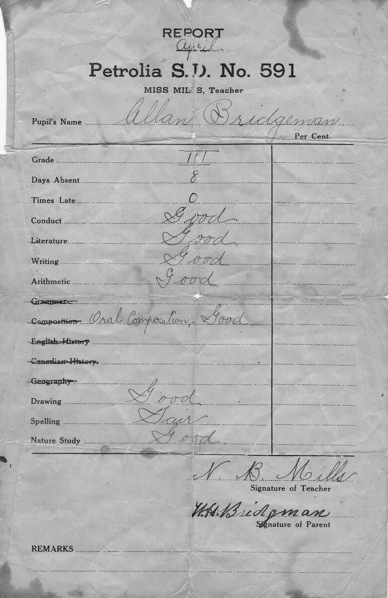 REPORT
April
Petrolia S.D. No. 591
MISS MIL S, Teacher
Pupil's Name Allan Bridgeman
Per Cent.
Grade III
Days Absent 8
Times Late 0
Conduct Good
Literature Good
Writing Good
Arithmetic Good
Grammar
Composition Oral Composition, Good
English History
Canadian History.
Geography
Drawing Good
Spelling Fair
Nature Study Good
N. B. Mills
Signature of Teacher
W.H. Bridgman
Signature of Parent
REMARKS